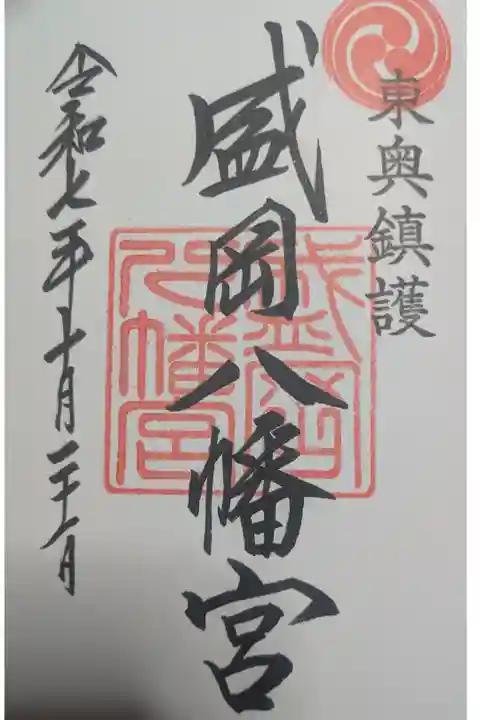 東奥鎮護
盛岡八幡宮
盛岡
八幡宮
令和七年十月二十一日